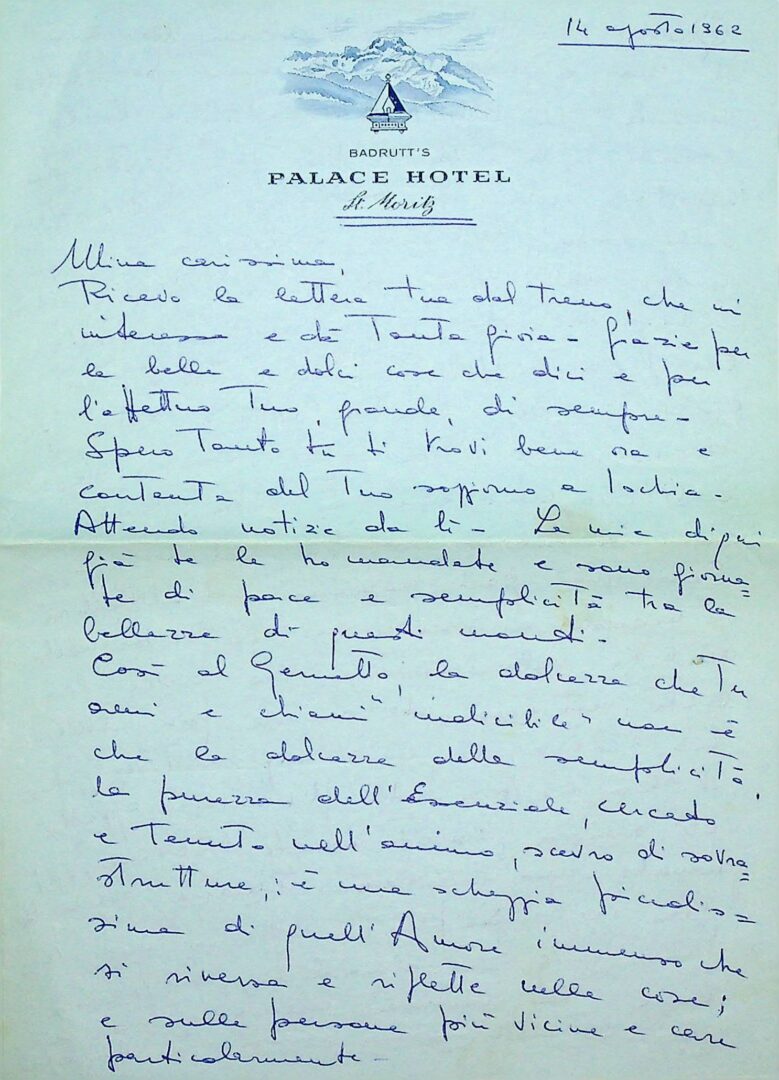 14 agosto 1962
BADRUTT'S
PALACE HOTEL
St. Moritz
Mina carissima,
Ricevo la lettera tua dal treno, che mi
interessa e dà Tanta gioia - Grazie per
le belle e dolci cose che dici e per
l'affettuo Tuo, grande, di sempre -
Spero Tanto tu ti trovi bene ora e
contenta del Tuo soggiorno a Ischia -
Attendo notizie da lì - Le mie di qui
già te le ho mandate e sono giorna=
te di pace e semplicità tra la
bellezza di questi monti -
Così al, la dolcezza che Tu
ami e chiami "indicibile" non è
che la dolcezza della semplicità,
la purezza dell'Essenziale, cercato
e Tenuto nell'animo, scevro di sovra=
strutture,: è una scheggia piccolis=
sima di quell'Amore immenso che
si riversa e riflette nelle cose;
e sulle persone più vicine e care
particolarmente -